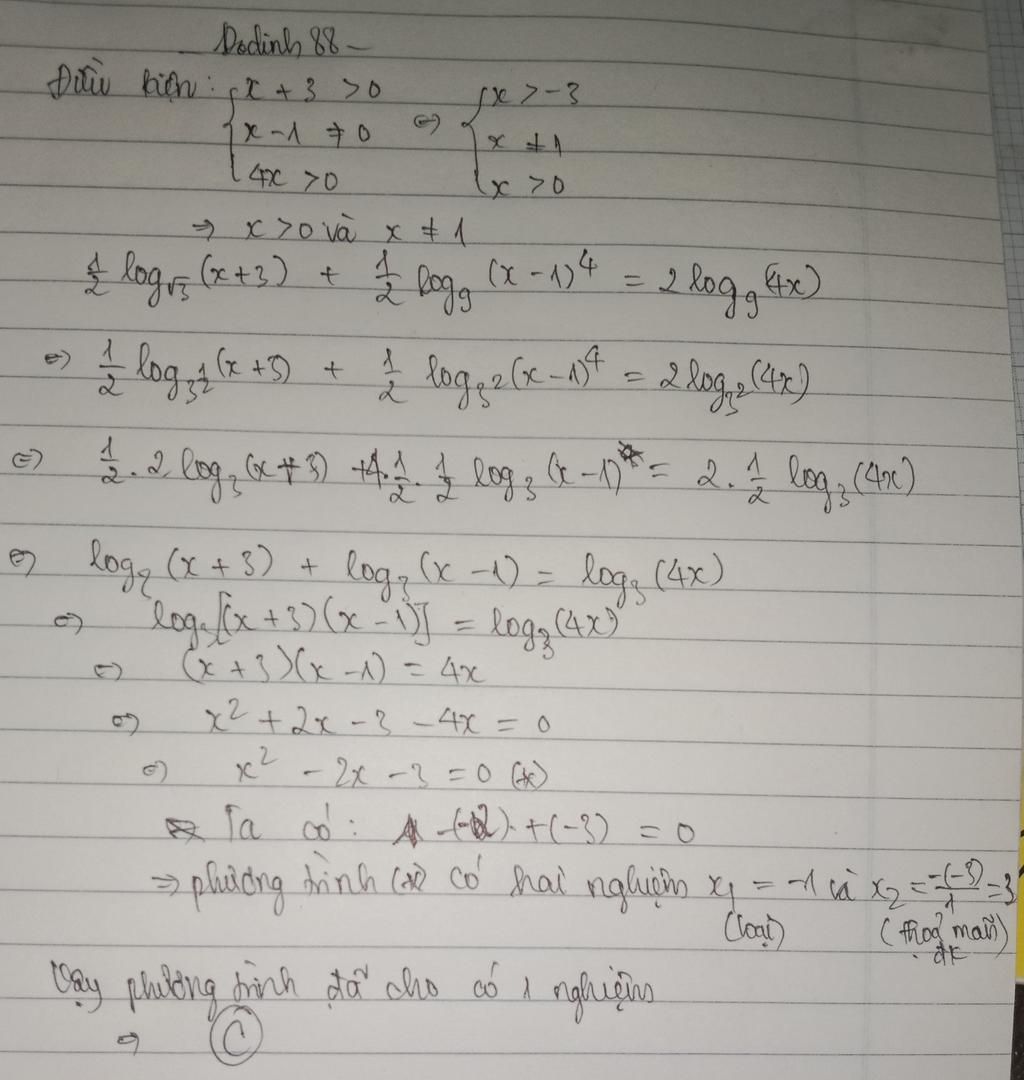 Dodinh 88
Điều kiện: { x + 3 > 0 ⇔ { x > -3
x - 1 ≠ 0 x ≠ 1
4x > 0 x > 0
⇒ x > 0 và x ≠ 1
1/2 log_√3 (x+3) + 1/2 log_9 (x-1)^4 = 2 log_9 (4x)
⇔ 1/2 log_{3^{1/2}} (x+3) + 1/2 log_{3^2} (x-1)^4 = 2 log_{3^2} (4x)
⇔ 1/2 . 2 log_3 (x+3) + 4. 1/2 . 1/2 log_3 (x-1) = 2. 1/2 log_3 (4x)
⇔ log_3 (x+3) + log_3 (x-1) = log_3 (4x)
⇔ log_3 [(x+3)(x-1)] = log_3 (4x)
⇔ (x+3)(x-1) = 4x
⇔ x² + 2x - 3 - 4x = 0
⇔ x² - 2x - 3 = 0 (*)
Ta có: 1 - (-2) + (-3) = 0
⇒ phương trình (*) có hai nghiệm x₁ = -1 và x₂ = -(-3)/1 = 3
(loại) (thoả mãn)
đk
Vậy phương trình đã cho có 1 nghiệm
⇒ C